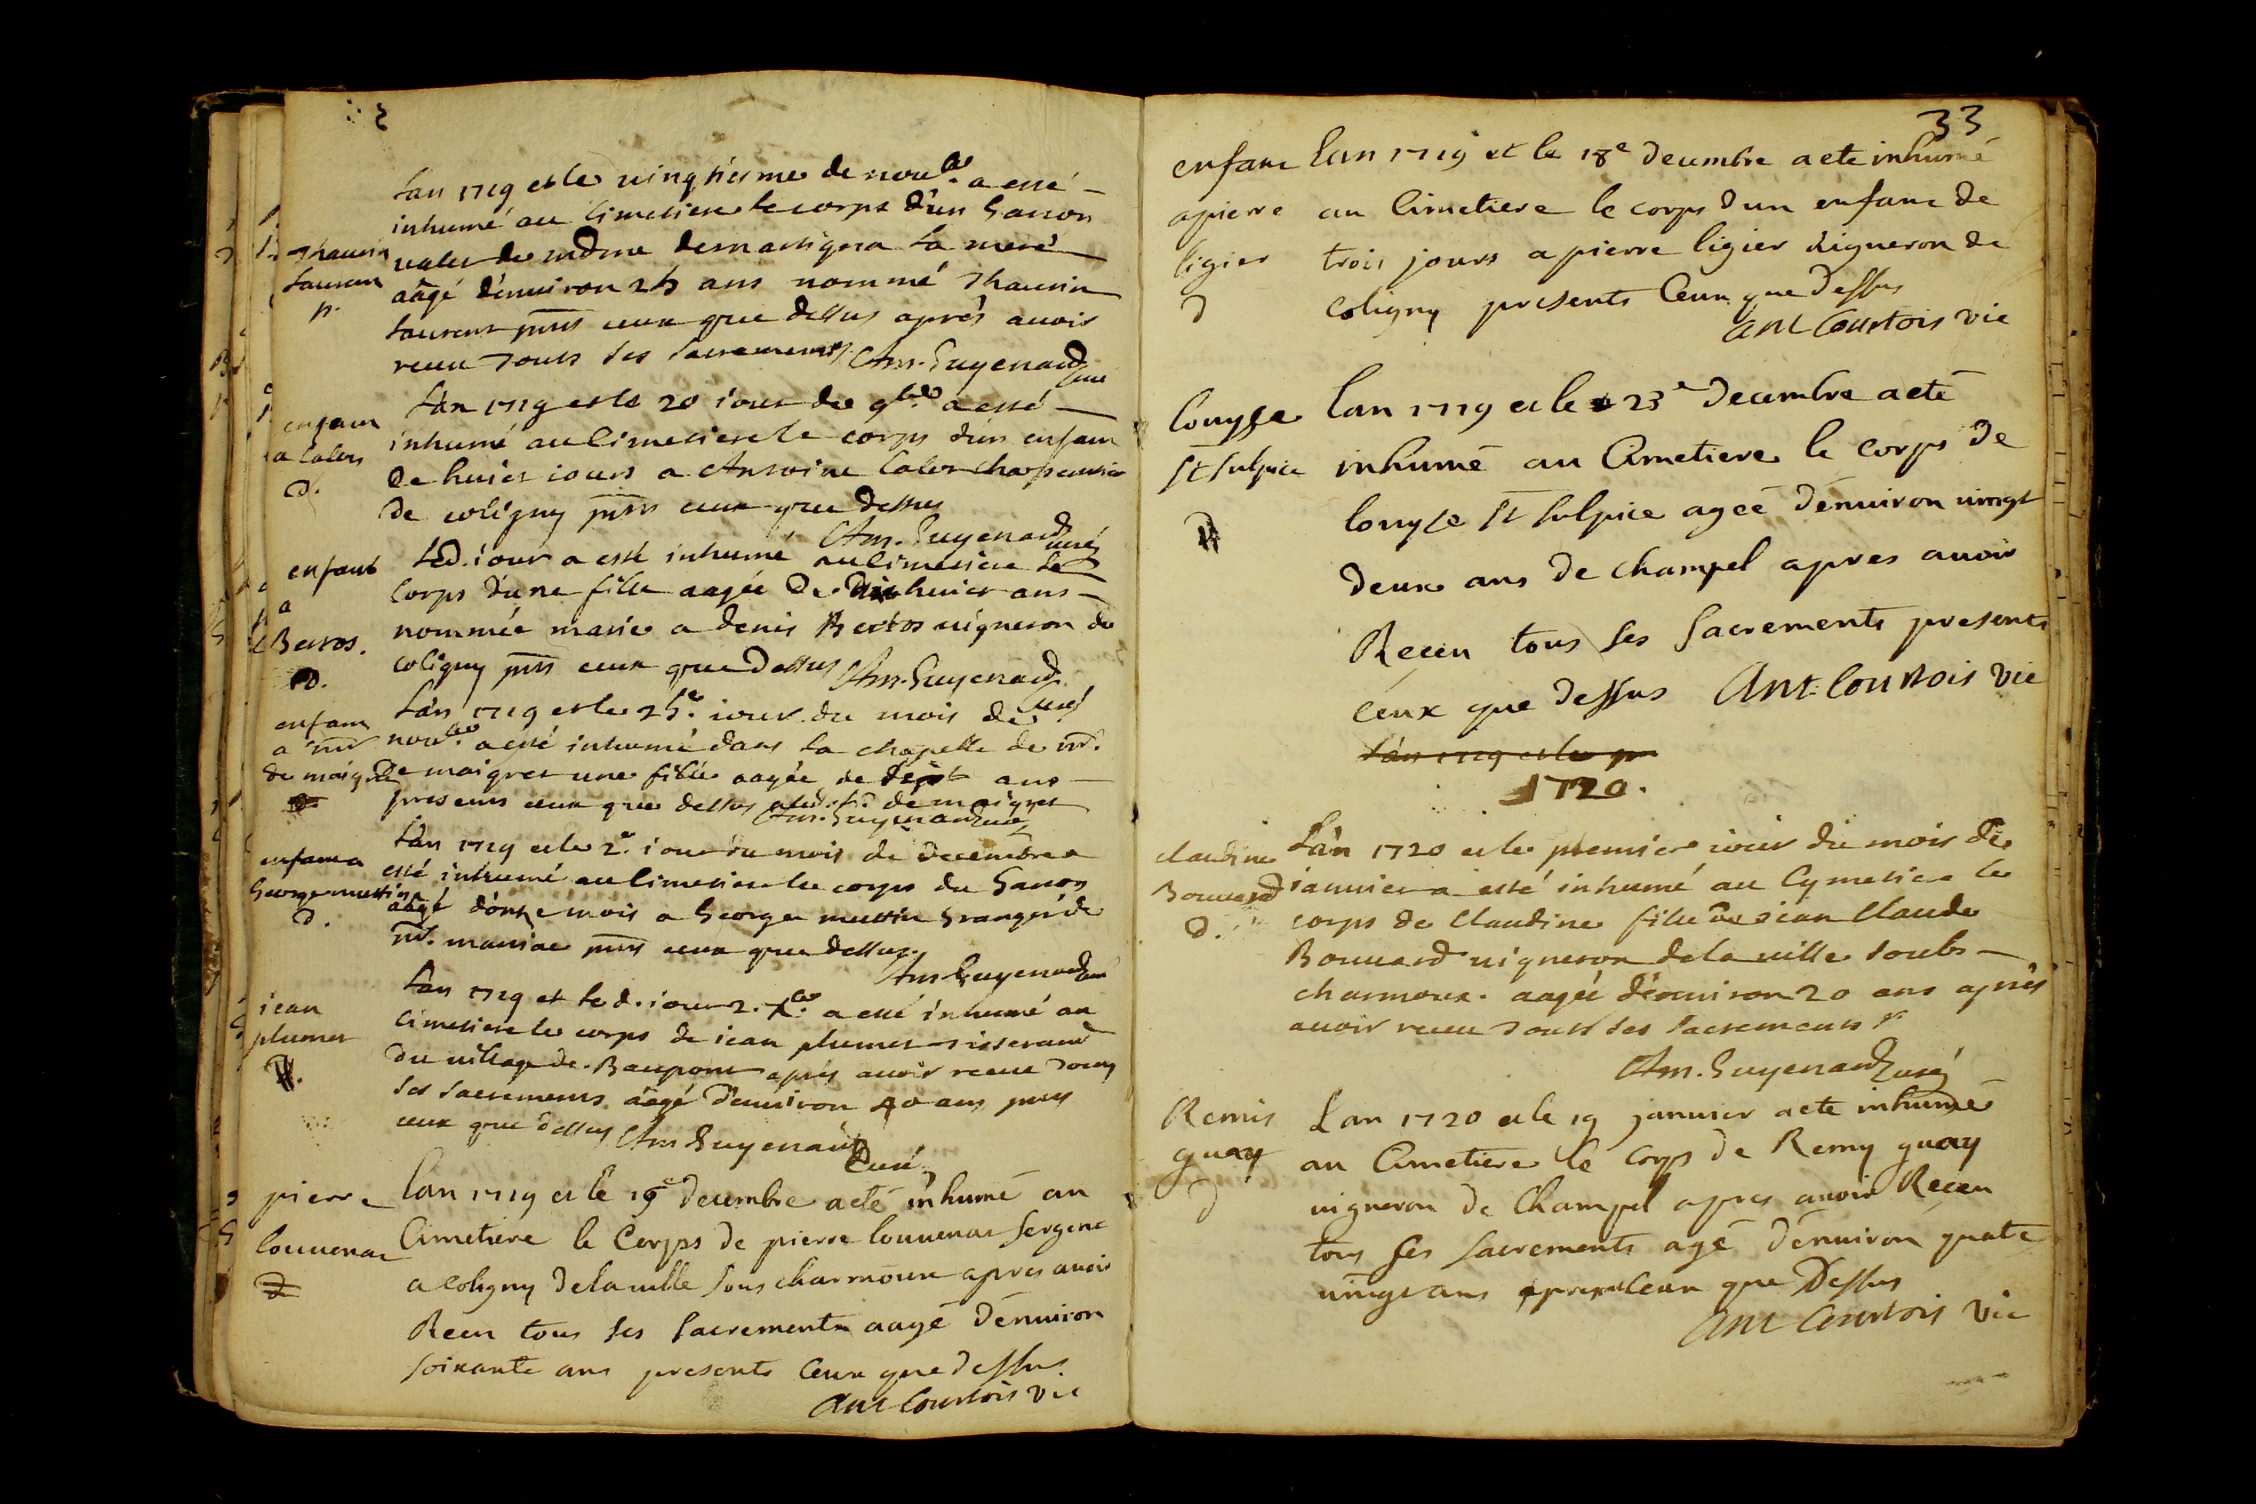 Lan 1719 et le vingtiesme de nou.bre a esté
inhumé au cimetiere le corps d'un Garson
Thaurin valet de mdme demartigna la mere
Laurent aâgé d'enuiron 25 ans nommé Thaurin
p. Laurent pnts ceux que dessus aprés auoir
receu touts ses sacrements Am. Guyenard curé
Lán 1719 et le 20 iour de 9bre a esté
enfant inhumé au cimetiere le corps d'un enfant
a Caler de huict iours a Antoine Caler charpentier
d. de coligny pnts ceux que dessus
Am. Guyenard curé
enfant Led. iour a esté inhumé au cimetiere le
a corps d'une fille aagée de huict ans
Bertos. nommée marie a denis Bertos uigneron de
d. coligny pnts ceux que dessus Am. Guyenard curé
enfant Lán 1719 et le 25e. iour du mois de
a mr nou.bre a esté inhumé dans la chapelle de mr.
de maigret de maigret une fille aagée de sept ans
d. presents ceux que dessus de maigret
Am. Guyenard curé
Lán 1719 et le 2e. iour du mois de decembre a
enfant a esté inhumé au cimetiere le corps du Garson
George muttin aâgé d'onze mois a George muttin Granger de
d. mr. pnts ceux que dessus.
Am Guyenard curé
Lán 1719 et led. iour 2. Xbre. a esté inhumé au
iean cimetiere le corps de iean plumet tisserand
plumet du uillage de Beaupont aprés auoir receu touts
ses sacrements aâgé d'enuiron 40 ans pnts
ceux que dessus Am Guyenard Curé
pierre Lan 1719 et le 19e decembre a eté inhumé au
louuenat Cimetiere le Corps de pierre louuenat sergent
d a coligny delauille sous charmoux apres auoir
Receu tous ses sacrements aagé d'enuiron
soixante ans presents Ceux que dessus
Ant Courtois vic
33
enfant Lan 1719 et le 18e decembre a eté inhumé
a pierre au Cimetiere le corps d'un enfant de
ligier trois jours a pierre ligier uigneron de
d coligny presents Ceux que dessus
Ant Courtois vic
louyse Lan 1719 et le 23e decembre a eté
st sulpice inhumé au Cimetiere le corps de
louyse st sulpice ageé d'enuiron uingt
deux ans de champel apres auoir
Receu tous ses sacrements presents
ceux que dessus Ant. Courtois vic
Lán 1719 et le
1720.
claudine Lán 1720 et le premier iour du mois de
Bouuard ianuier a esté inhumé au Cymetiere le
d. corps de Claudine fille de iean Claude
Bouuard uigneron de la uille soubs
charmoux. aagée d'enuiron 20 ans aprés
auoir receu touts ses sacrements
Am. Guyenard curé
Remis Lan 1720 et le 19 januier a eté inhumé
guay au Cimetiere le Corps de Remy guay
d uigneron de Champel apres auoir Receu
tous ses sacrements agé d'enuiron quatre
uingt ans presents Ceux que Dessus
Ant Courtois vic